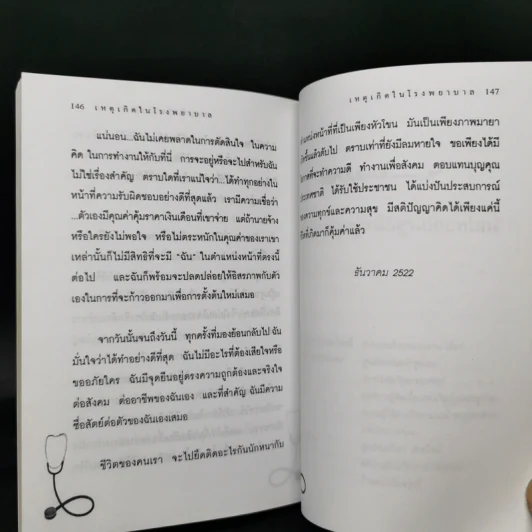 146 เหตุเกิดในโรงพยาบาล
แน่นอน...ฉันไม่เคยพลาดในการตัดสินใจ ในความ
คิด ในการทำงานให้กับที่นี่ การจะอยู่หรือจะไปสำหรับฉัน
ไม่ใช่เรื่องสำคัญ ตราบใดที่เราแน่ใจว่า...ได้ทำทุกอย่างใน
หน้าที่ความรับผิดชอบอย่างดีที่สุดแล้ว เรามีความเชื่อว่า
...ตัวเองมีคุณค่าคุ้มราคาเงินเดือนที่เขาจ่าย แต่ถ้านายจ้าง
หรือใครยังไม่พอใจ หรือไม่ตระหนักในคุณค่าของเราเขา
เหล่านั้นก็ไม่มีสิทธิที่จะมี "ฉัน" ในตำแหน่งหน้าที่ตรงนี้
ต่อไป และฉันก็พร้อมจะปลดปล่อยให้อิสรภาพกับตัว
เองในการที่จะก้าวออกมาเพื่อการตั้งต้นใหม่เสมอ
จากวันนั้นจนถึงวันนี้ ทุกครั้งที่มองย้อนกลับไป ฉัน
มั่นใจว่าได้ทำอย่างดีที่สุด ฉันไม่มีอะไรที่ต้องเสียใจหรือ
ขออภัยใคร ฉันมีจุดยืนอยู่ตรงความถูกต้องและจริงใจ
ต่อสังคม ต่ออาชีพของฉันเอง และที่สำคัญ ฉันมีความ
ซื่อสัตย์ต่อตัวของฉันเองเสมอ
ชีวิตของคนเรา จะไปยึดติดอะไรกันนักหนากับ
เหตุเกิดในโรงพยาบาล 147
หน้าที่ที่เป็นเพียงหัวโขน มันเป็นเพียงภาพมายา
ขึ้นแล้วดับไป ตราบเท่าที่ยังมีลมหายใจ ขอเพียงได้มี
ที่จะทำความดี ทำงานเพื่อสังคม ตอบแทนบุญคุณ
ประเทศชาติ ได้รับใช้ประชาชน ได้แบ่งปันประสบการณ์
ความทุกข์และความสุข มีสติปัญญาคิดได้เพียงแค่นี้
ที่เกิดมาก็คุ้มค่าแล้ว
ธันวาคม 2522